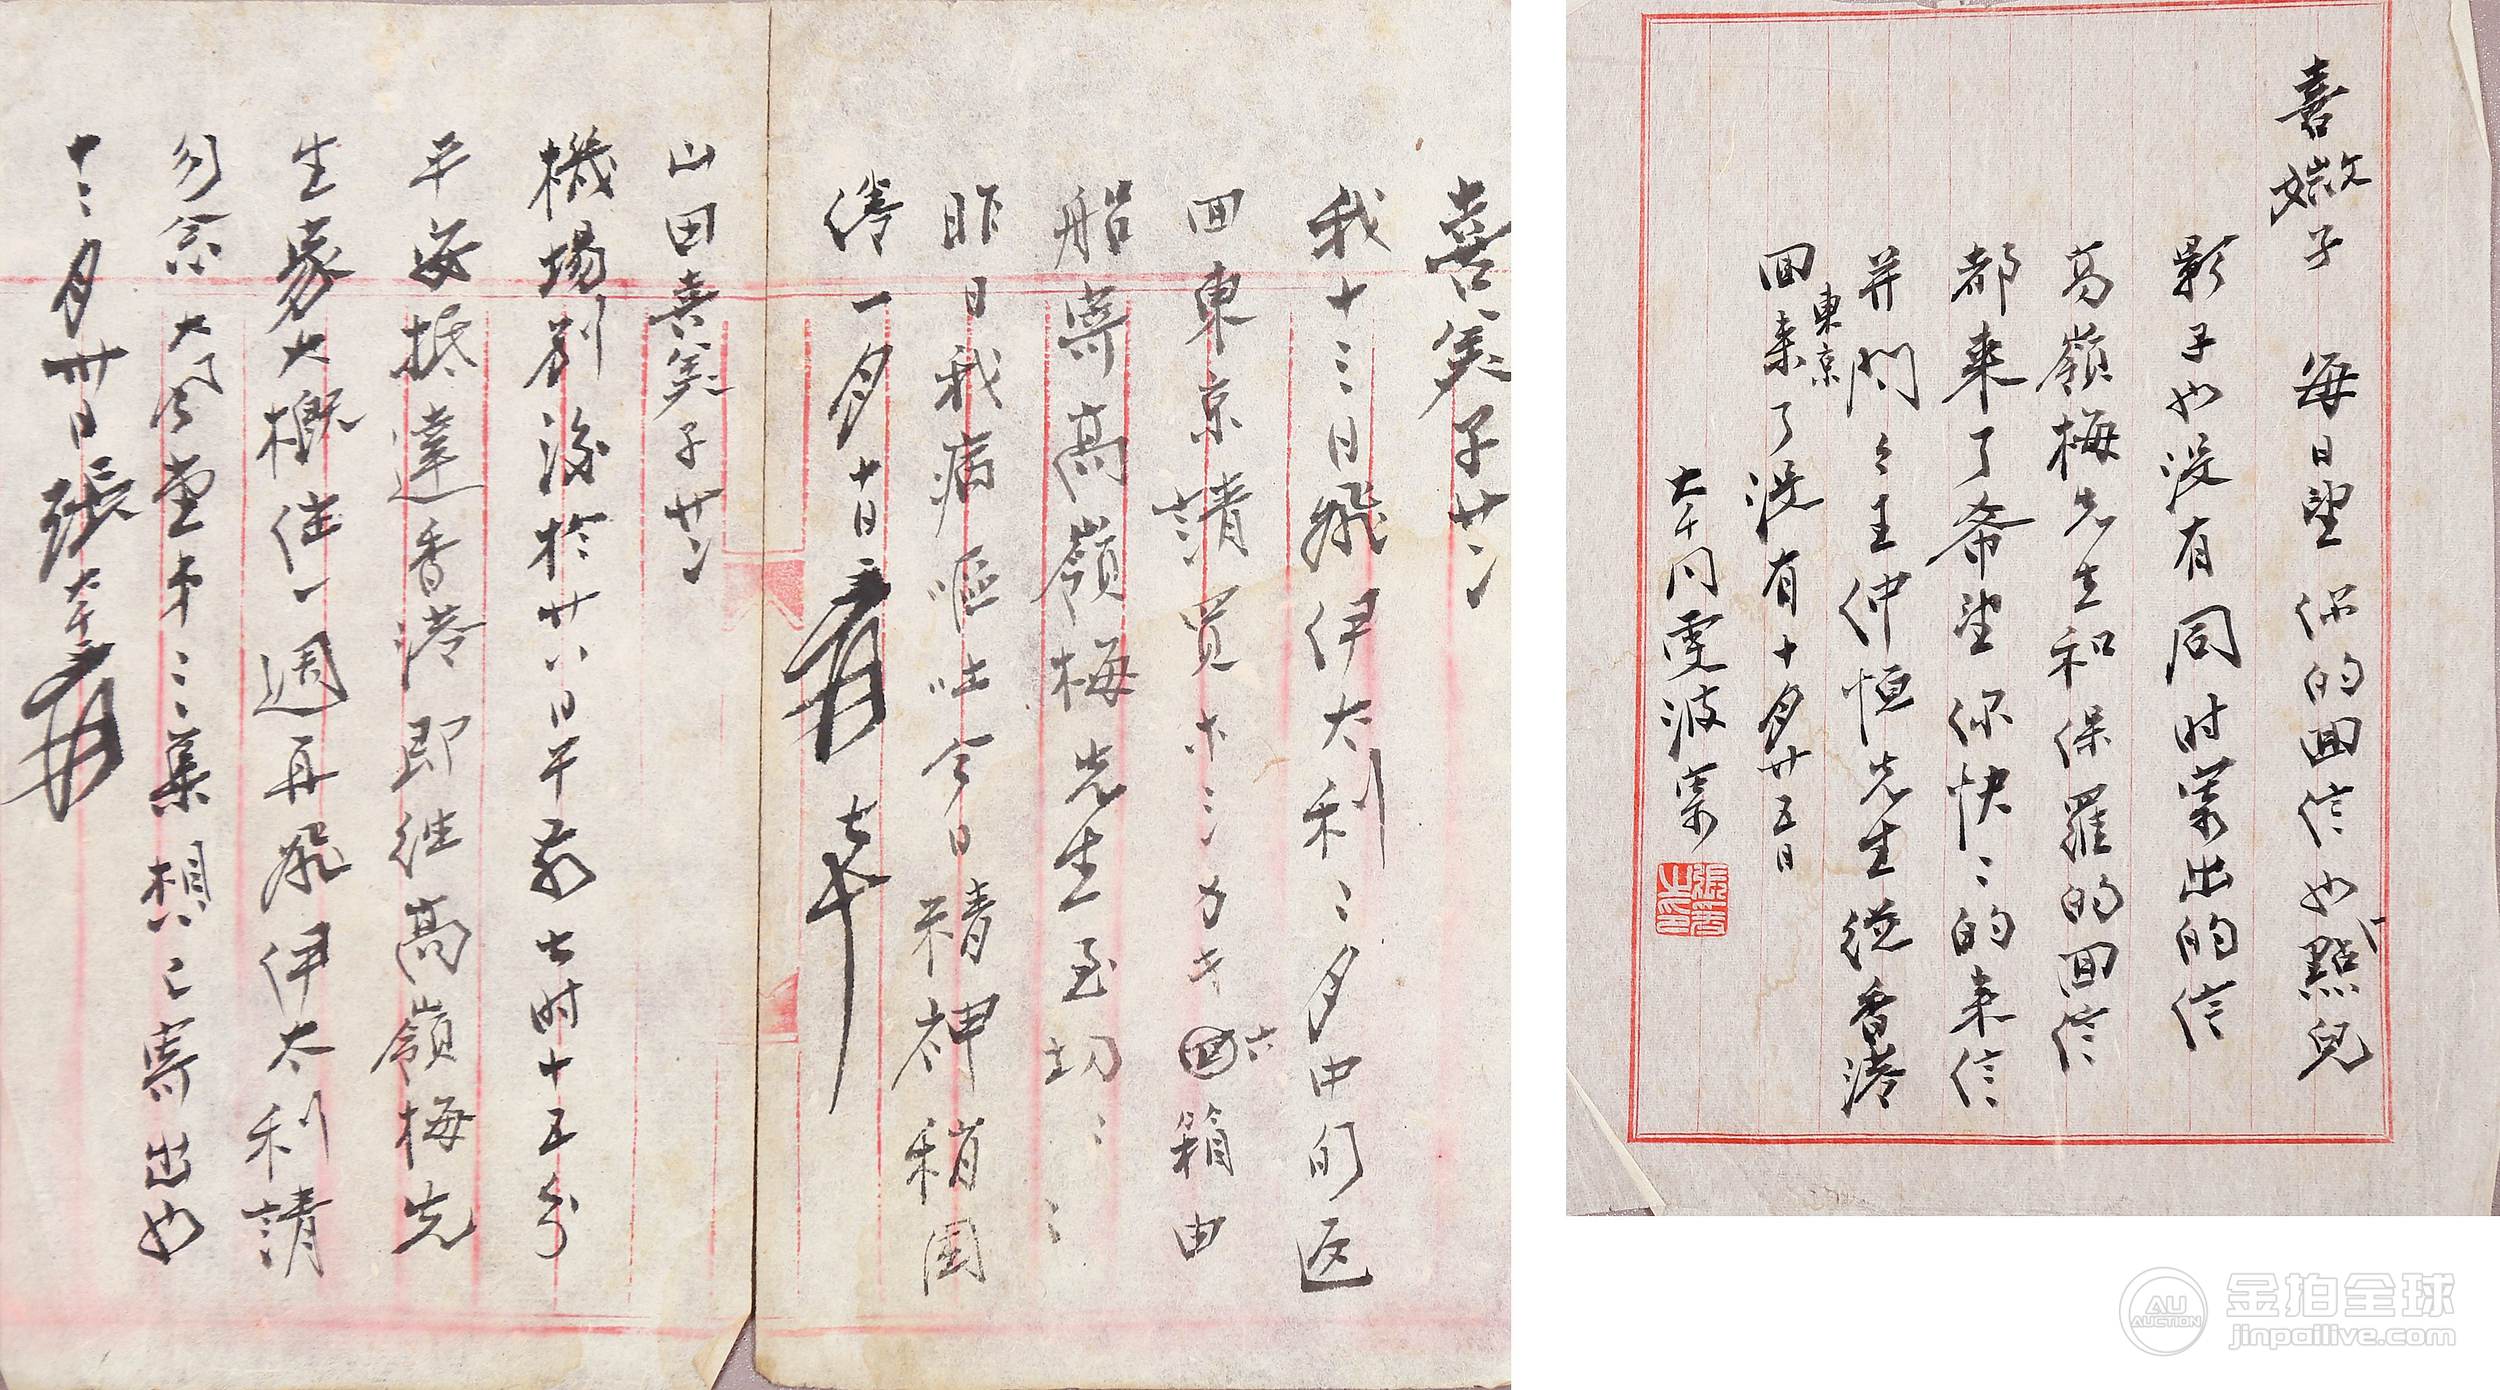 喜㜫子 每日望你的回信也一點兒
影子也没有同时寄出的信
高嶺梅先生和保羅的回信
都来了希望你快々的来信
并問々王仲恒先生從香港
回東京来了没有十月廿五日
大千同雯波寄
喜美子廿二
我十三日飛伊太利二月中旬返
回東京請買ホシカキ六箱由
船寄高嶺梅先生至切々
昨日我病嘔吐今日精神稍困
倦一月十日爰
七千
山田喜美子廿二
機場别後於廿八日午前七时十五分
平安抵達香港即往高嶺梅先
生家大概住一週再飛伊太利請
勿念大風堂第三集想已寄出也
十二月廿日張大千爰
AU
AUCTION
金拍全球
jinpailive.com